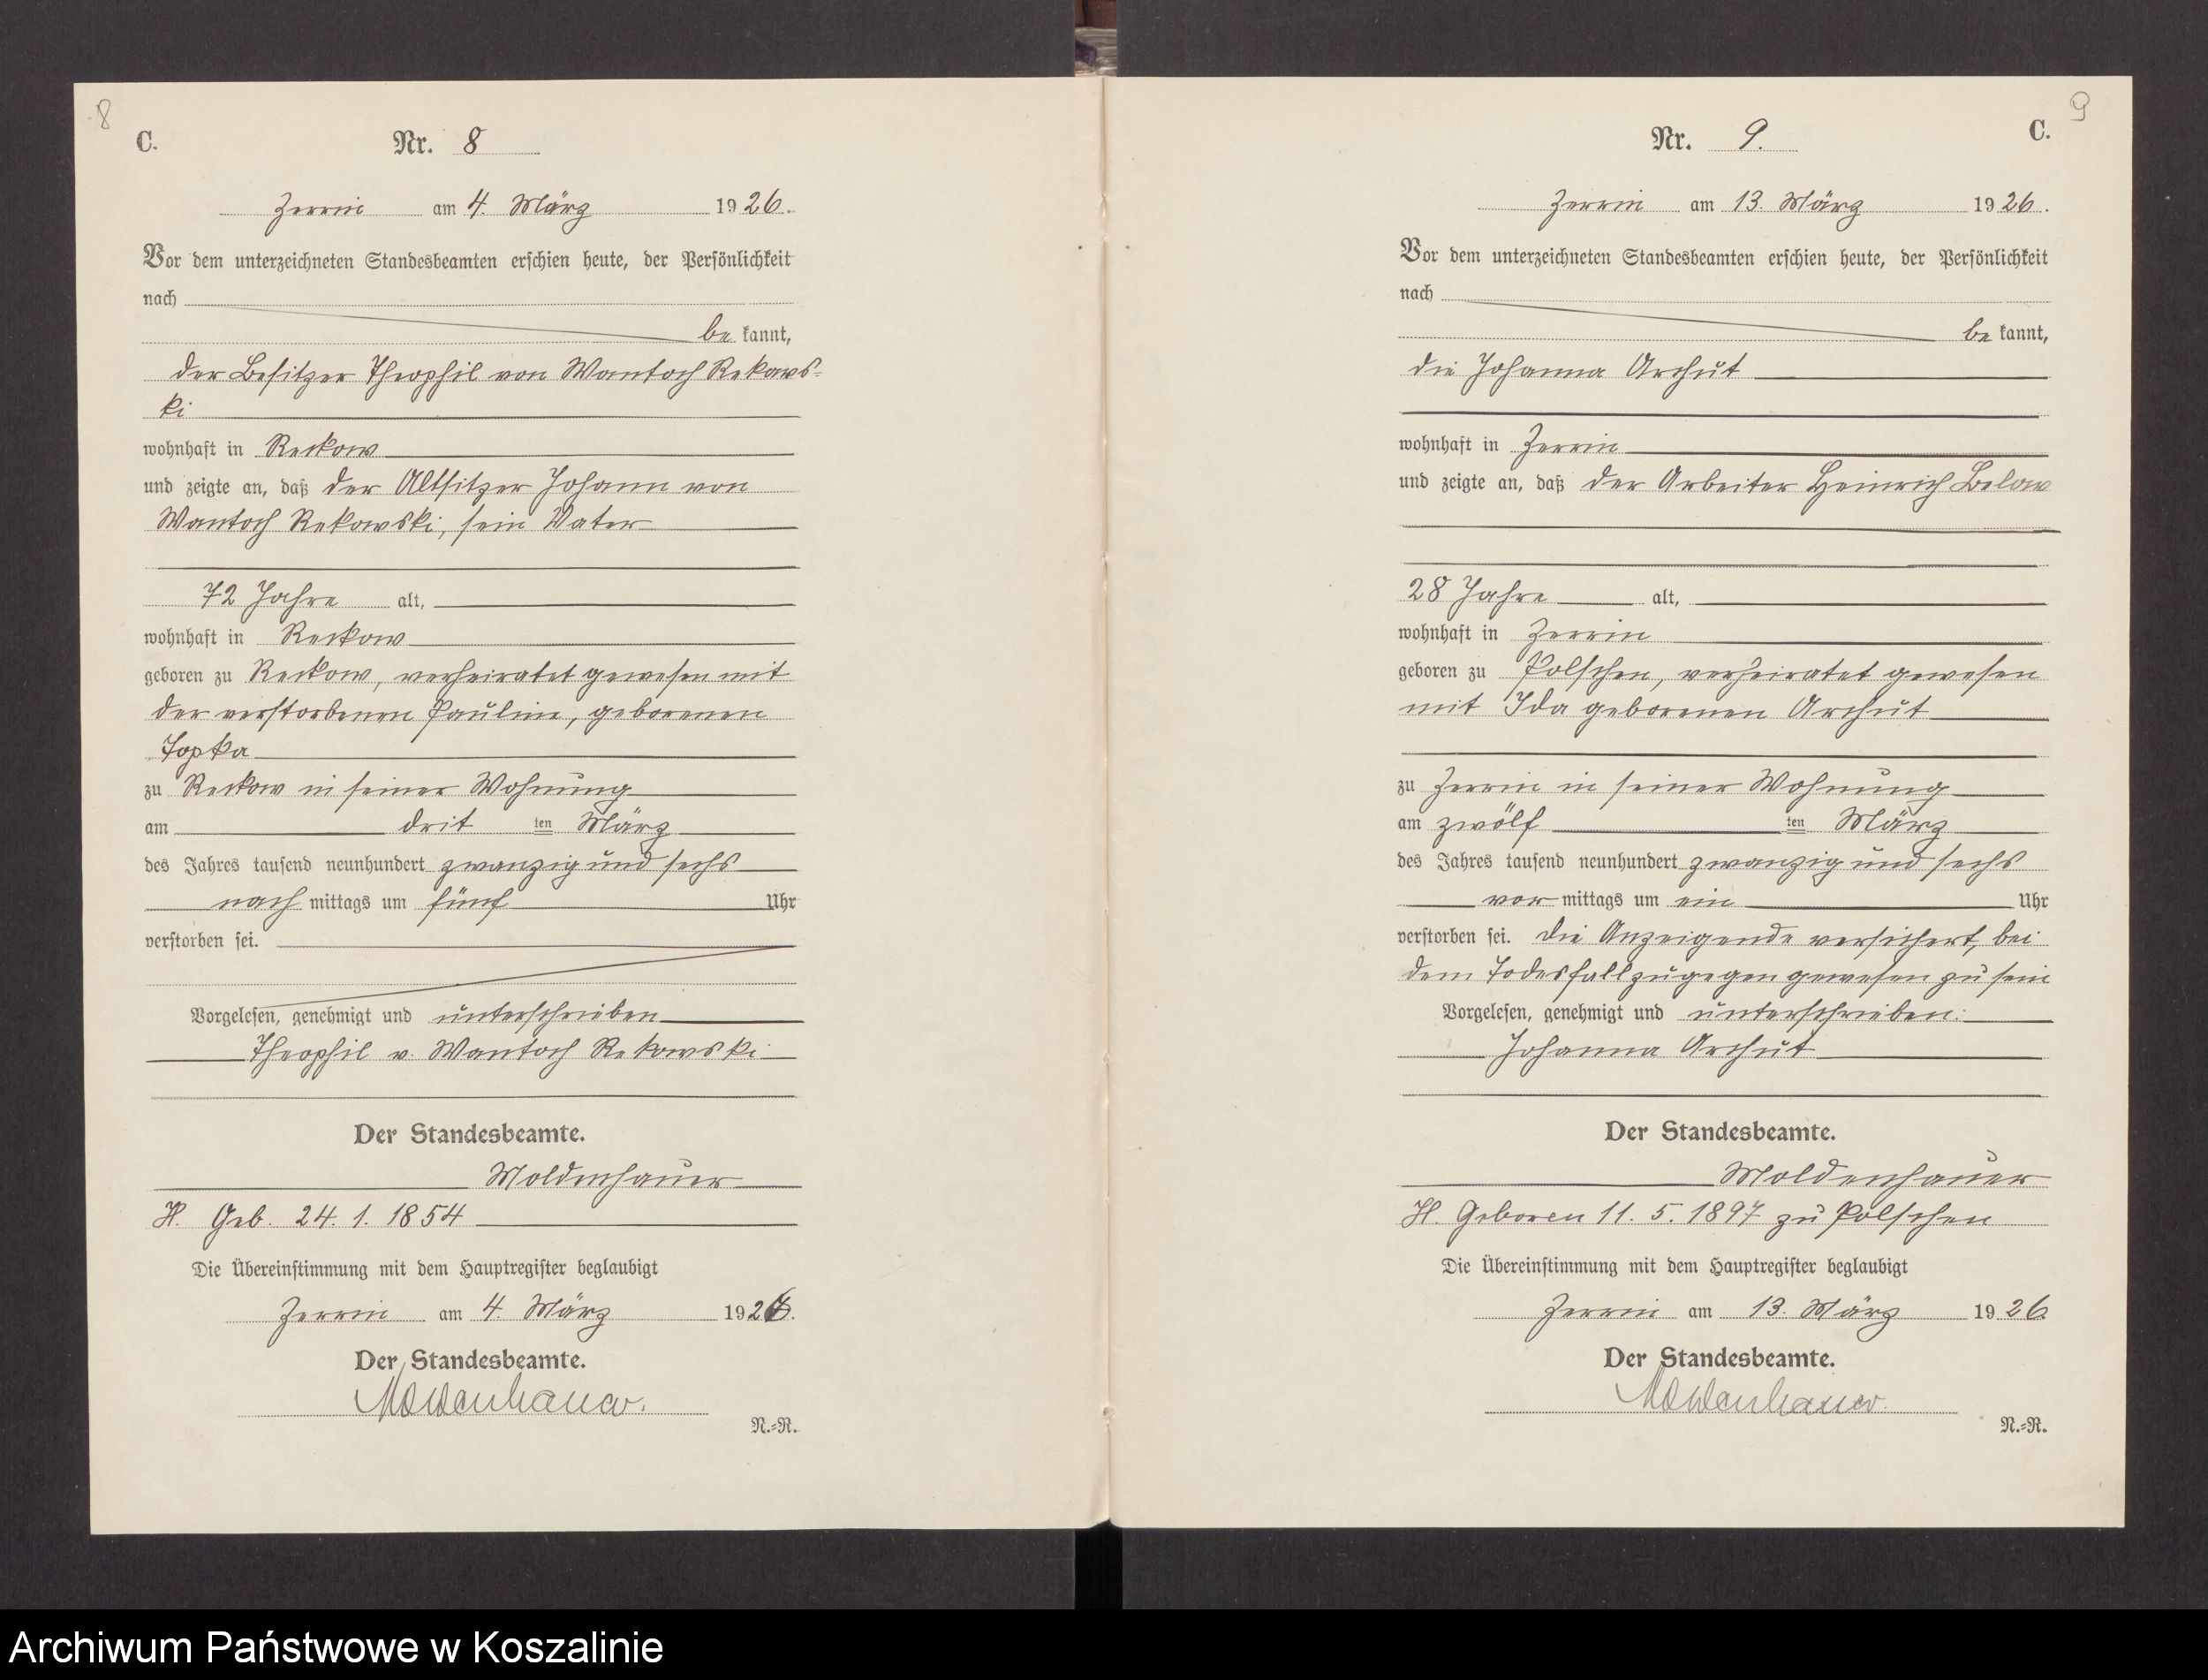 8
C.
Nr. 8
Zerrin am 4. März 1926.
Vor dem unterzeichneten Standesbeamten erschien heute, der Persönlichkeit
nach
be kannt,
der Besitzer Theophil von Wantoch Rekows-
ki
wohnhaft in Reckow
und zeigte an, daß der Altsitzer Johann von
Wantoch Rekowski, sein Vater
72 Jahre alt,
wohnhaft in Reckow
geboren zu Reckow, verheiratet gewesen mit
der verstorbenen Pauline, geborenen
Topka
zu Reckow in seiner Wohnung
am drit ten März
des Jahres tausend neunhundert zwanzig und sechs
nach mittags um fünf Uhr
verstorben sei.
Vorgelesen, genehmigt und unterschrieben
Theophil v. Wantoch Rekowski
Der Standesbeamte.
Moldenhauer
H. Geb. 24. 1. 1854
Die Übereinstimmung mit dem Hauptregister beglaubigt
Zerrin am 4. März 1926.
Der Standesbeamte.
Moldenhauer.
N.-R.
9
C.
Nr. 9.
Zerrin am 13. März 1926.
Vor dem unterzeichneten Standesbeamten erschien heute, der Persönlichkeit
nach
be kannt,
die Johanna Archut
wohnhaft in Zerrin
und zeigte an, daß der Arbeiter Heinrich Below
28 Jahre alt,
wohnhaft in Zerrin
geboren zu Polschen, verheiratet gewesen
mit Ida geborenen Archut
zu Zerrin in seiner Wohnung
am zwölf ten März
des Jahres tausend neunhundert zwanzig und sechs
vor mittags um ein Uhr
verstorben sei. Die Anzeigende versichert, bei
dem Todesfall zugegen gewesen zu sein
Vorgelesen, genehmigt und unterschrieben:
Johanna Archut
Der Standesbeamte.
Moldenhauer
H. Geboren 11. 5. 1897 zu Polschen
Die Übereinstimmung mit dem Hauptregister beglaubigt
Zerrin am 13. März 1926
Der Standesbeamte.
Moldenhauer.
N.-R.
Archiwum Państwowe w Koszalinie